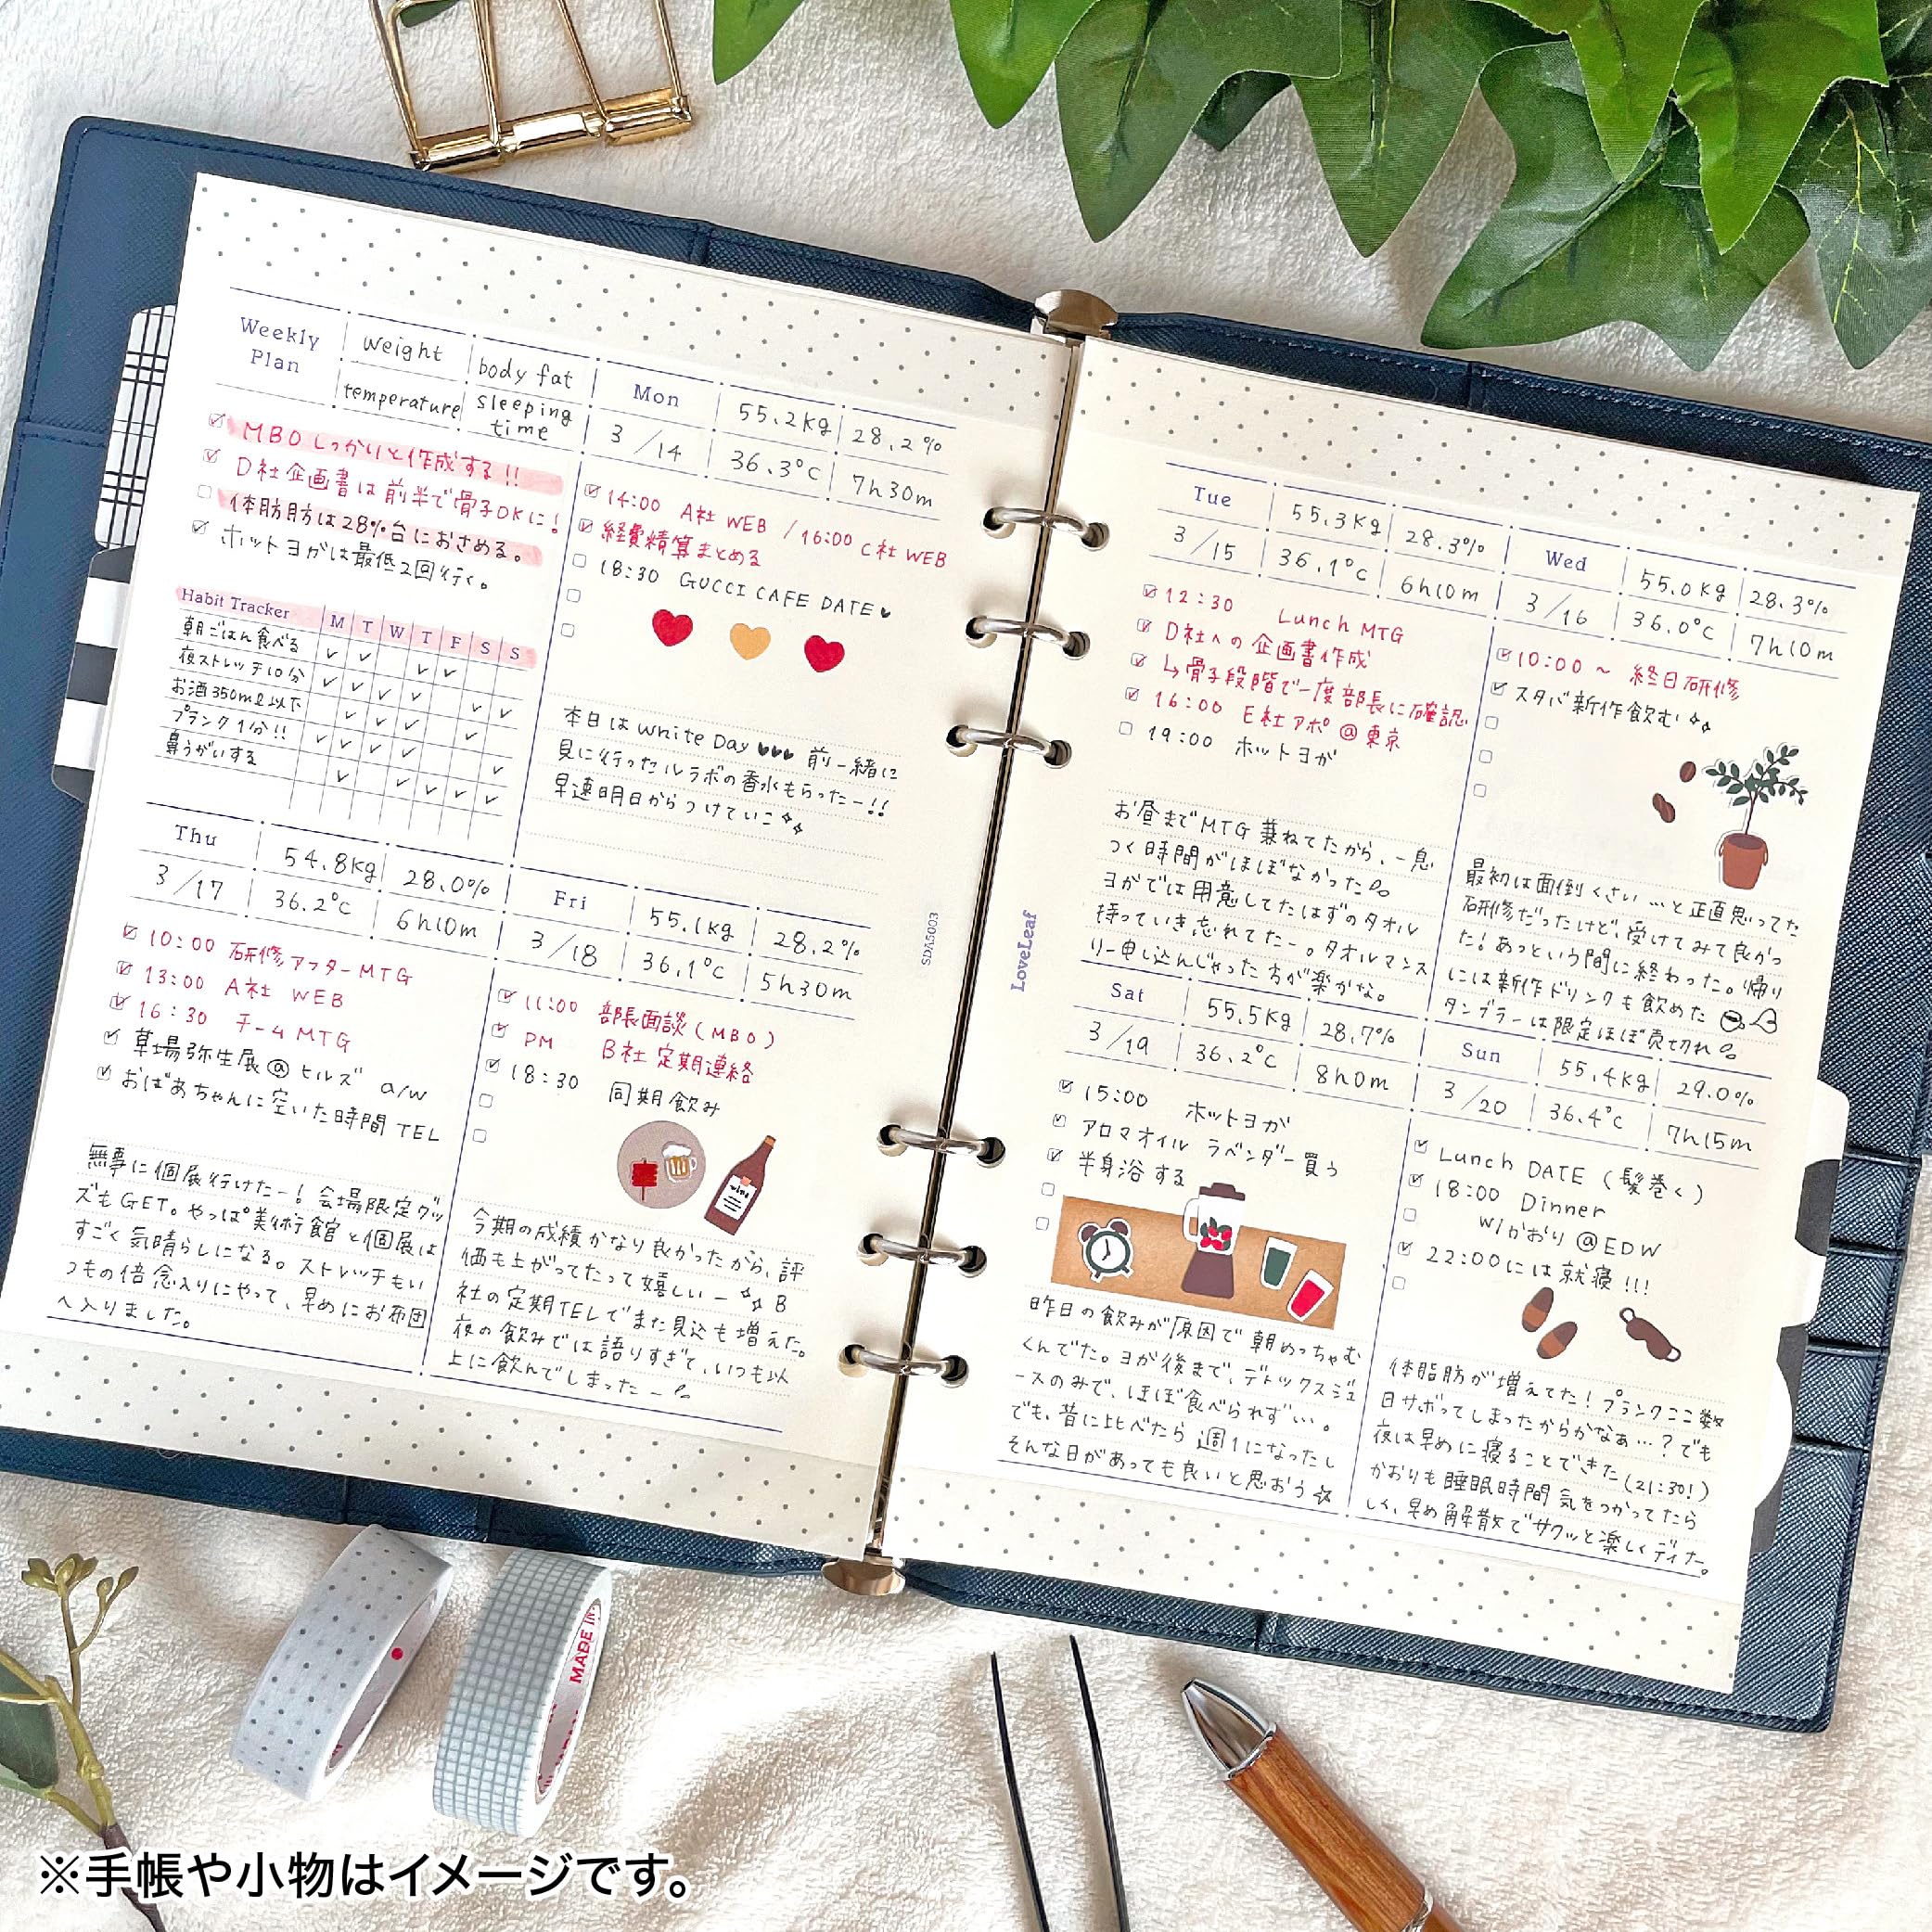 Weekly Plan
weight
body fat
temperature
sleeping time
MBOしっかりと作成する!!
D社企画書は前半で骨子OKに!
体肪肪は28%台におさめる。
ホットヨガは最低2回行く。
Habit Tracker M T W T F S S
朝ごはん食べる
夜ストレッチ10分
お酒350mℓ以下
プランク1分!!
鼻うがいする
Mon 55.2kg 28.2%
3/14 36.3℃ 7h30m
14:00 A社 WEB / 16:00 C社 WEB
経費精算まとめる
18:30 GUCCI CAFE DATE♥
本日は White Day ♥♥♥ 前一緒に
見に行ったルラボの香水もらったー!!
早速明日からつけていこ
Thu 54.8kg 28.0%
3/17 36.2℃ 6h10m
10:00 研修アフターMTG
13:00 A社 WEB
16:30 チームMTG
草場弥生展@ヒルズ a/w
おばあちゃんに空いた時間 TEL
無事に個展行けたー!会場限定グッ
ズもGET。やっぱ美術館と個展は
すごく気晴らしになる。ストレッチもい
つもの倍念入りにやって、早めにお布団
へ入りました。
Fri 55.1kg 28.2%
3/18 36.1℃ 5h30m
11:00 部長面談(MBO)
PM B社定期連絡
18:30 同期飲み
今期の成績かなり良かったから、評
価も上がってたって嬉しいー B
社の定期TELでまた見込も増えた。
夜の飲みでは語りすぎて、いつも以
上に飲んでしまったー
SDA5003
LoveLeaf
Tue 55.3kg 28.3%
3/15 36.1℃ 6h10m
12:30 Lunch MTG
D社への企画書作成
↳骨子段階で一度部長に確認
16:00 E社アポ@東京
19:00 ホットヨガ
お昼までMTG兼ねてたから、一息
つく時間がほぼなかった
ヨガでは用意してたはずのタオル
持っていき忘れてたー。タオルマンス
リー申し込んじゃった方が楽かな。
Wed 55.0kg 28.3%
3/16 36.0℃ 7h10m
10:00〜 終日研修
スタバ新作飲む
最初は面倒くさい…と正直思ってた
研修だったけど、受けてみて良かっ
た!あっという間に終わった。帰り
には新作ドリンクも飲めた
タンブラーは限定ほぼ売切れ
Sat 55.5kg 28.7%
3/19 36.2℃ 8h0m
15:00 ホットヨガ
アロマオイル ラベンダー買う
半身浴する
昨日の飲みが原因で朝めっちゃむ
くんでた。ヨガ後まで、デトックスジュ
ースのみで、ほぼ食べられずい。
でも、昔に比べたら週1になったし
そんな日があっても良いと思おう☆
Sun 55.4kg 29.0%
3/20 36.4℃ 7h15m
Lunch DATE (髪巻く)
18:00 Dinner
w/かおり@EDW
22:00には就寝!!!
体脂肪が増えてた!プランクここ数
日サボってしまったからかなぁ…?でも
夜は早めに寝ることできた(21:30!)
かおりも睡眠時間気をつかってたら
しく、早め解散でサクッと楽しくディナー。
MADE IN
※手帳や小物はイメージです。